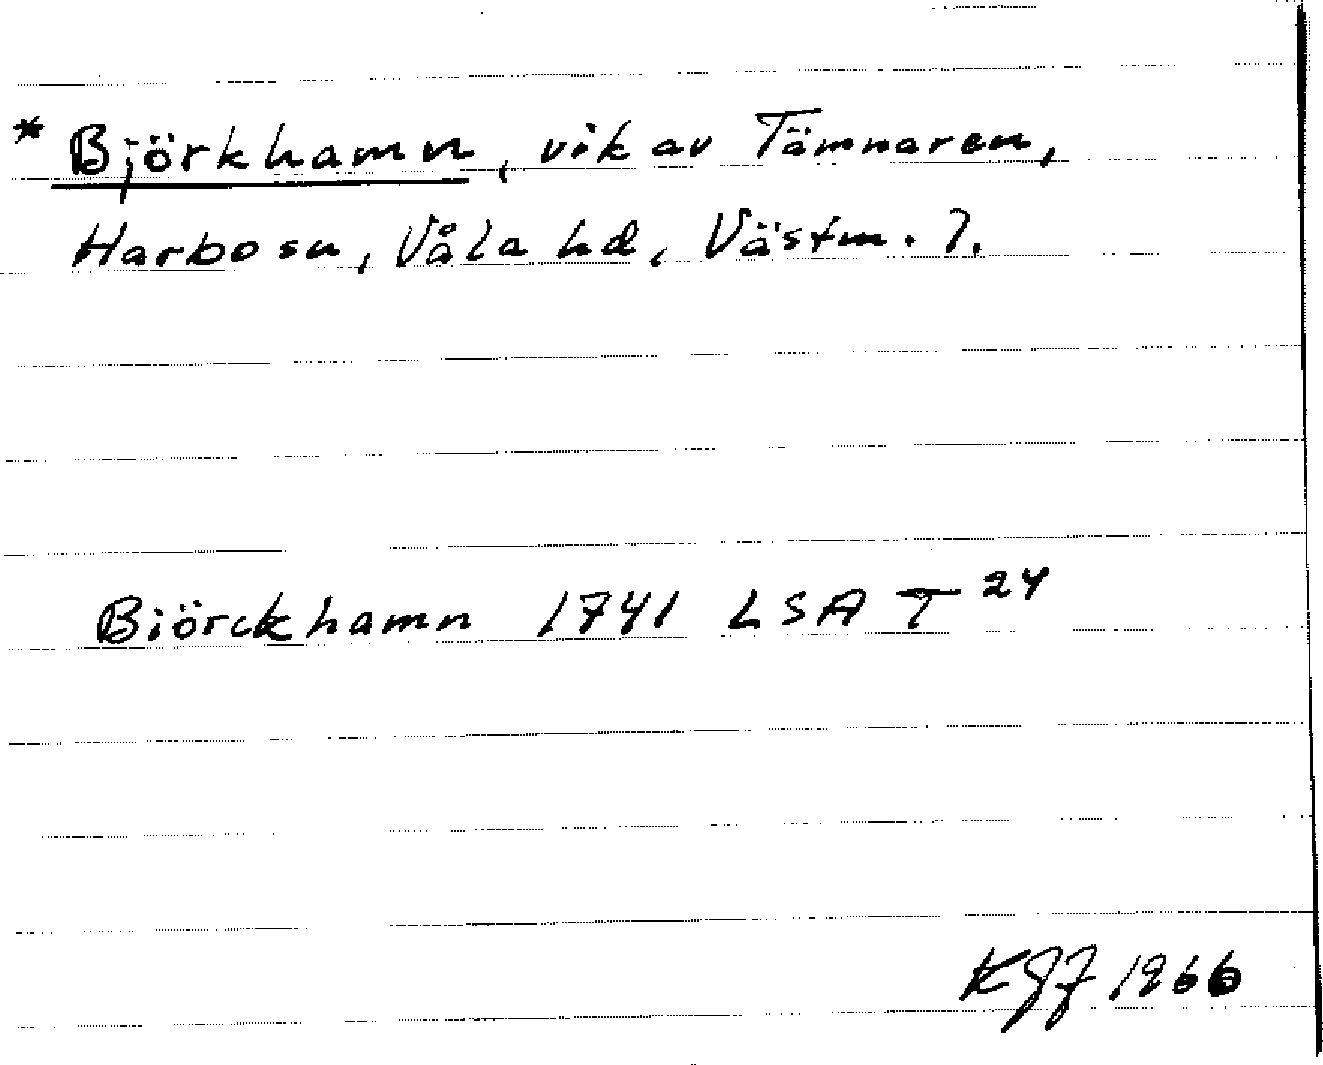 * Björkhamn, vik av Tämnaren,
Harbo sn, Våla hd, Västm. l.
Biörckhamn 1741 LSA T 24
KGF 1966